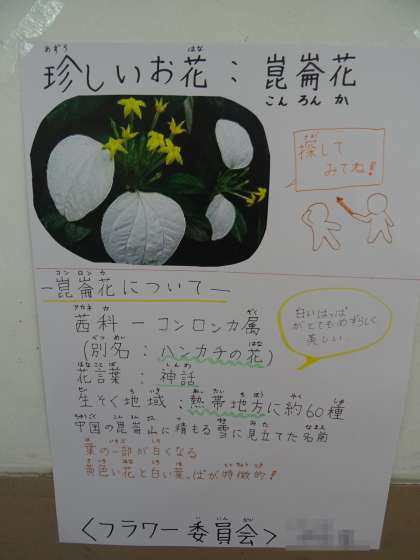 珍しいお花：崑崙花
こんろんか
探して
みてね！
崑崙花について
茜科ーコンロンカ属
(別名：ハンカチの花)
花言葉：神話
生そく地域：熱帯地方に約60種
中国の崑崙山に積もる雪に見立てた名前
葉の一部が白くなる
黄色い花と白い葉っぱが特徴的！
白いはっぱ
がとてもめずらしく
美しい
<フラワー委員会>